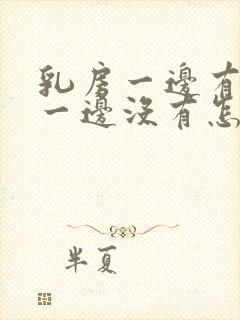 乳房一邊有
一邊沒有怎
半夏